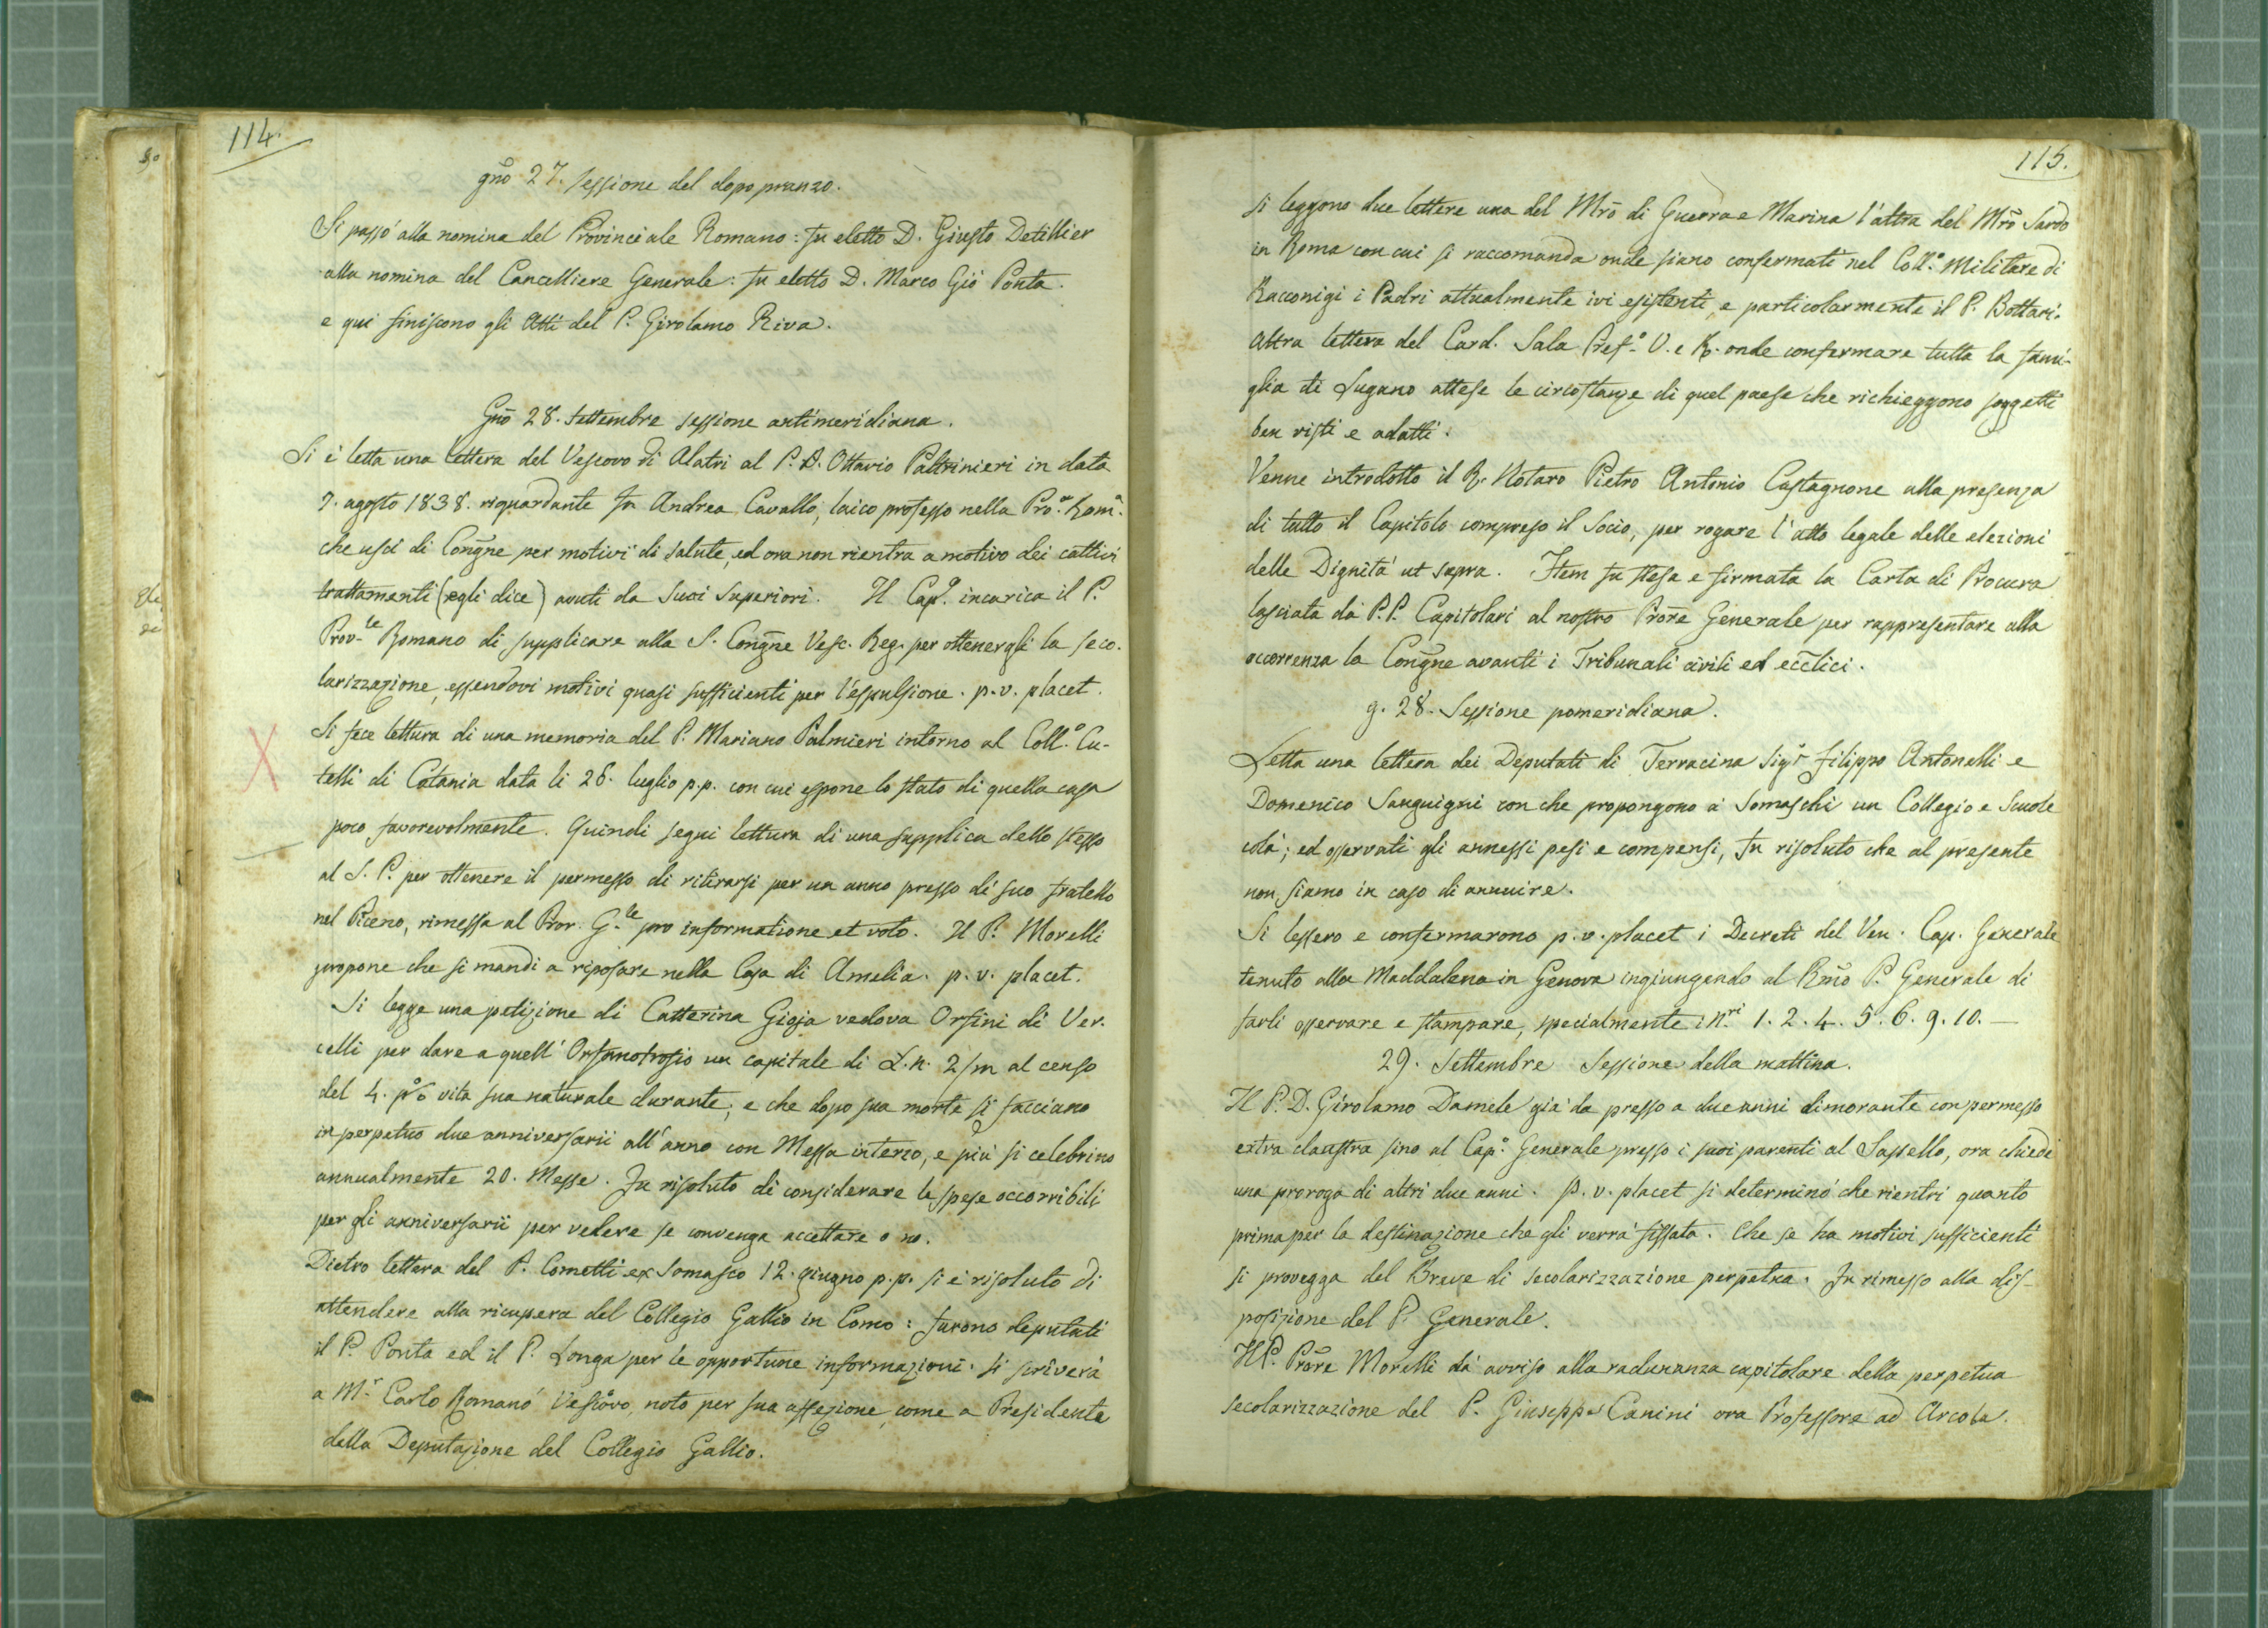 114.
gño 27. sessione del dopo pranzo.
Si passò alla nomina del Provinciale Romano: fu eletto D. Giusto Detillier
alla nomina del Cancelliere Generale: fu eletto D. Marco Gio Ponta.
e qui finiscono gli Atti del P. Girolamo Riva.
Gño 28. Settembre sessione antimeridiana.
Si è letta una lettera del Vescovo di Alatri al P. D. Ottavio Paltrinieri in data
7. agosto 1838. riguardante fr Andrea Cavallo, laico professo nella Pro.ª Rom.ª
che uscì di Congñe per motivi di salute, ed ora non rientra a motivo dei cattivi
trattamenti (egli dice) avuti da suoi Superiori. Il Cap.º incarica il P.
Prov.le Romano di supplicare alla S. Congñe Vesc. Reg. per ottenergli la seco-
larizzazione, essendovi motivi quasi sufficienti per l'espulsione. p. v. placet.
Si fece lettura di una memoria del P. Mariano Palmieri intorno al Coll.º Cu-
telli di Catania data li 26. luglio p.p. con cui espone lo stato di quella casa
poco favorevolmente. Quindi seguì lettura di una supplica dello stesso
al S. P. per ottenere il permesso di ritirarsi per un anno presso di suo fratello
nel Piceno, rimessa al Pror. G.le pro informatione et voto. Il P. Morelli
propone che si mandi a riposare nella Casa di Amelia. p. v. placet.
Si legge una petizione di Catterina Gioja vedova Orsini di Ver-
celli per dare a quell' Orfanotrofio un capitale di L. n. 2/m al censo
del 4. p% vita sua naturale durante; e che dopo sua morte si facciano
in perpetuo due anniversarii all'anno con Messa in terzo, e più si celebrino
annualmente 20. Messe. Fu risoluto di considerare le spese occorribili
per gli anniversarii per vedere se convenga accettare o no.
Dietro lettera del P. Cometti ex Somasco 12. giugno p.p. si è risoluto di
attendere alla ricupera del Collegio Gallio in Como: furono deputati
il P. Ponta ed il P. Longa per le opportune informazioni. Si scriverà
a M.r Carlo Romanò Vescovo, noto per sua affezione, come a Presidente
della Deputazione del Collegio Gallio.
115.
Si leggono due lettere una del Mrõ di Guerra e Marina l'altra del Mrõ Sardo
in Roma con cui si raccomanda onde siano confermati nel Coll.º Militare di
Racconigi i Padri attualmente ivi esistenti, e particolarmente il P. Bottari.
Altra lettera del Card. Sala Pref.º V. e R. onde confermare tutta la fami-
glia di Lugano attese le circostanze di quel paese che richieggono soggetti
ben visti e adatti.
Venne introdotto il R. Notaro Pietro Antonio Castagnone alla presenza
di tutto il Capitolo compreso il Socio, per rogare l'atto legale delle elezioni
delle Dignità ut supra. Item fu stesa e firmata la Carta di Procura
lasciata da P.P. Capitolari al nostro Prõre Generale per rappresentare alla
occorrenza la Congñe avanti i Tribunali civili ed ecc̃lici.
g. 28. Sessione pomeridiana.
Letta una lettera dei Deputati di Terracina Sig.r Filippo Antonelli e
Domenico Sanguigni con che propongono a' Somaschi un Collegio e Scuole
colà; ed osservati gli annessi pesi e compensi, fu risoluto che al presente
non siamo in caso di annuire.
Si lessero e confermarono p. v. placet i Decreti del Ven. Cap. Generale
tenuto alla Maddalena in Genova ingiungendo al Rmõ P. Generale di
farli osservare e stampare, specialmente i n.ri 1. 2. 4. 5. 6. 9. 10. —
29. Settembre Sessione della mattina.
Il P. D. Girolamo Damele già da presso a due anni dimorante con permesso
extra claustra sino al Cap.º Generale presso i suoi parenti al Sassello, ora chiede
una proroga di altri due anni. p. v. placet si determinò che rientri quanto
prima per la destinazione che gli verrà fissata. Che se ha motivi sufficienti
si provegga del Breve di secolarizzazione perpetua. Fu rimesso alla dis-
posizione del P. Generale.
Il P. Prõre Morelli dà avviso alla radunanza capitolare della perpetua
secolarizzazione del P. Giuseppe Canini ora Professore ad Arcola.